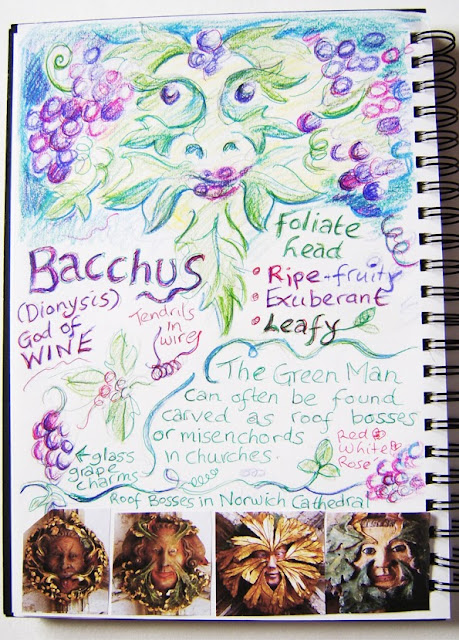 foliate
head
Bacchus
• Ripe + fruity
• Exuberant
• Leafy
(Dionysis)
God of
WINE
Tendrils
in
wire
The Green Man
can often be found
carved as roof bosses
or misenchords
in churches.
Red
White
Rose
←glass
grape
charms
Roof Bosses in Norwich Cathedral